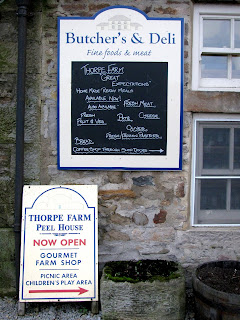 Butcher's & Deli
Fine foods & meat
THORPE FARM
GREAT
EXPECTATIONS
HOME MADE READY MEALS
AVAILABLE NOW!
ALSO AVAILABLE
FRESH MEAT
FRESH
FRUIT & VEG.
PIES
CHEESE
CAKES
BREAD
COFFEE SHOP THROUGH SHOP DOORS
THORPE FARM
PEEL HOUSE
NOW OPEN
GOURMET
FARM SHOP
PICNIC AREA
CHILDREN'S PLAY AREA